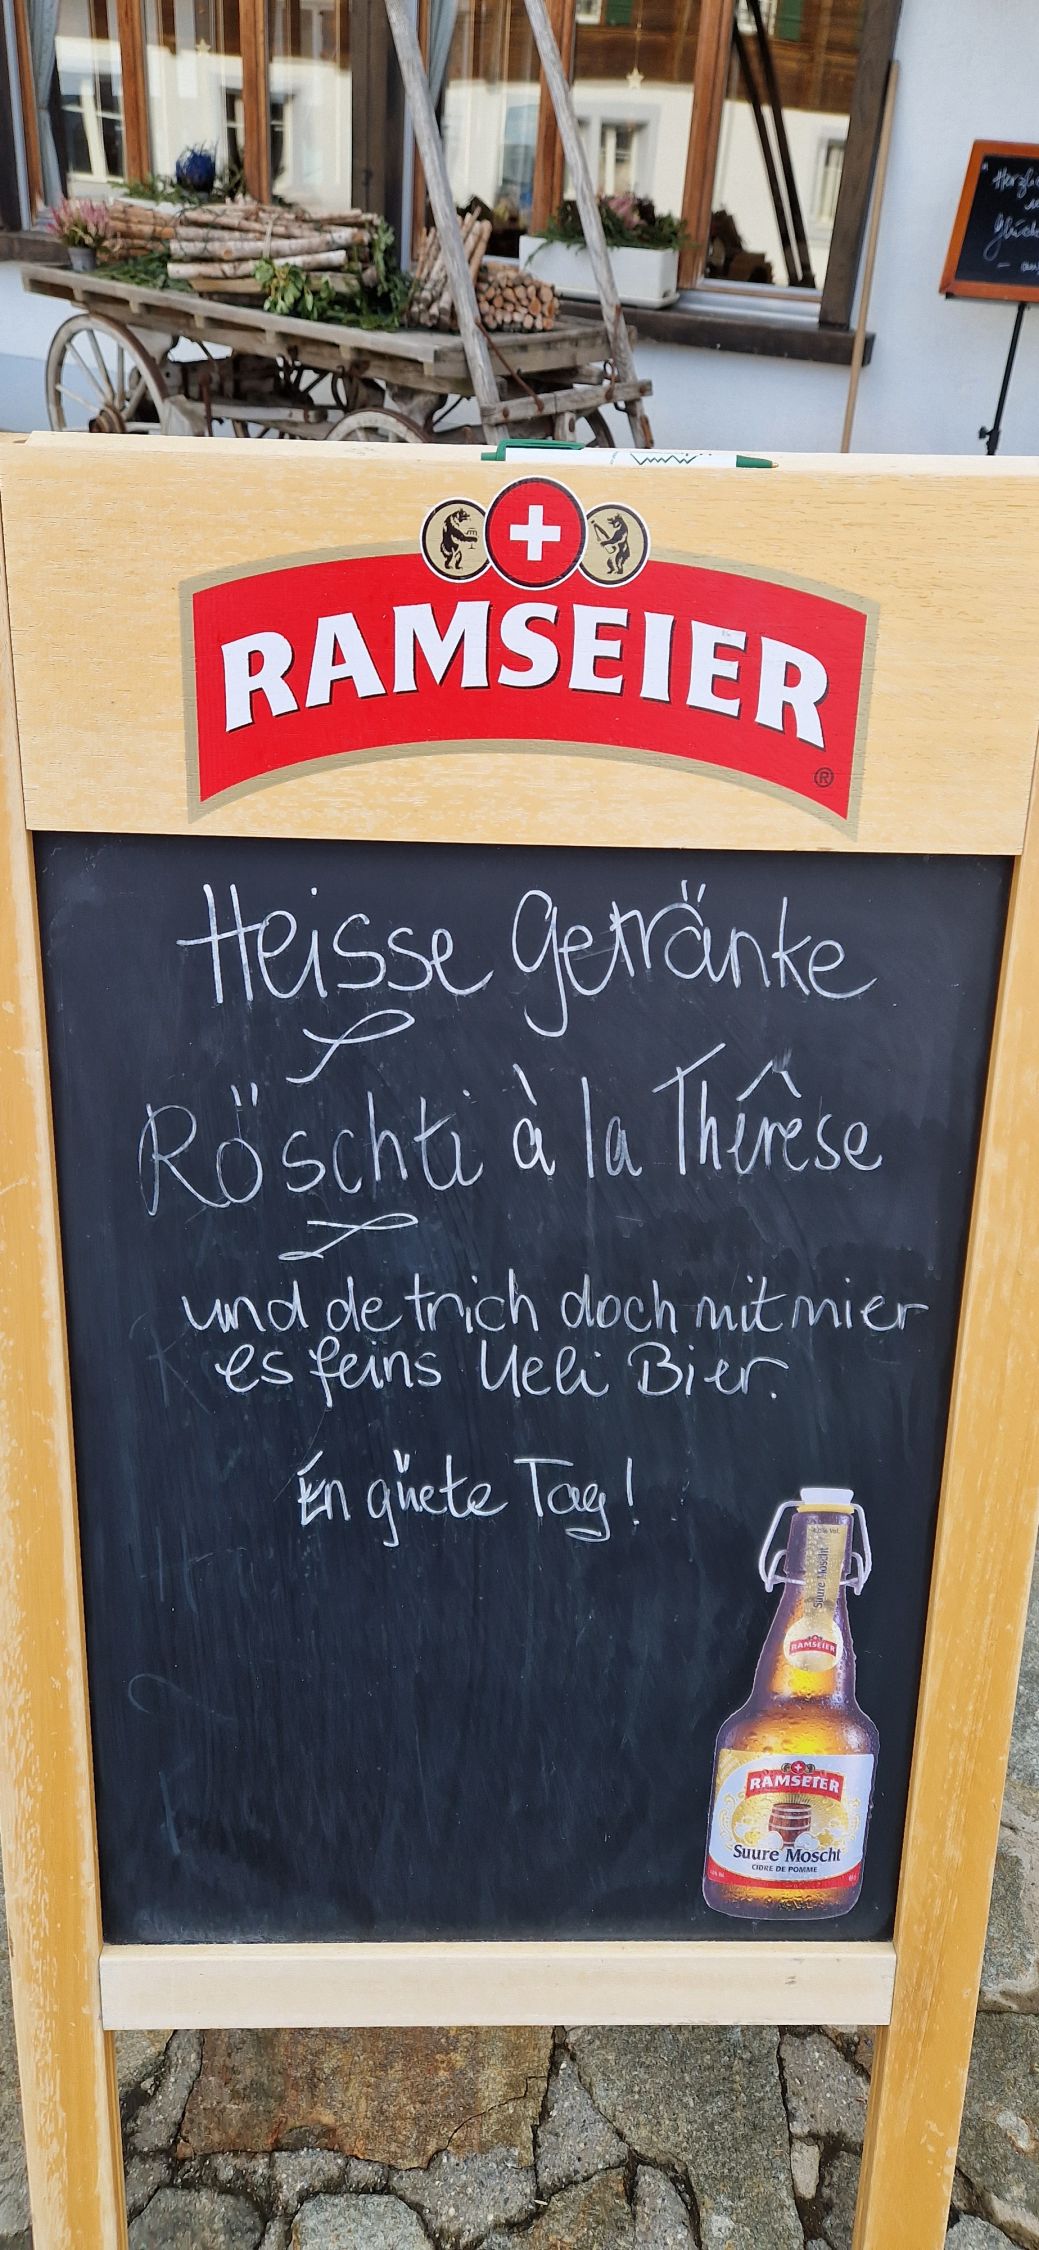 "Herzli
Glück
RAMSEIER
®
Heisse Getränke
Röschti à la Thérèse
und de trich doch mit mier
es feins Ueli Bier.
En güete Tag!
Suure Moscht
RAMSEIER
RAMSEIER
Suure Moscht
CIDRE DE POMME